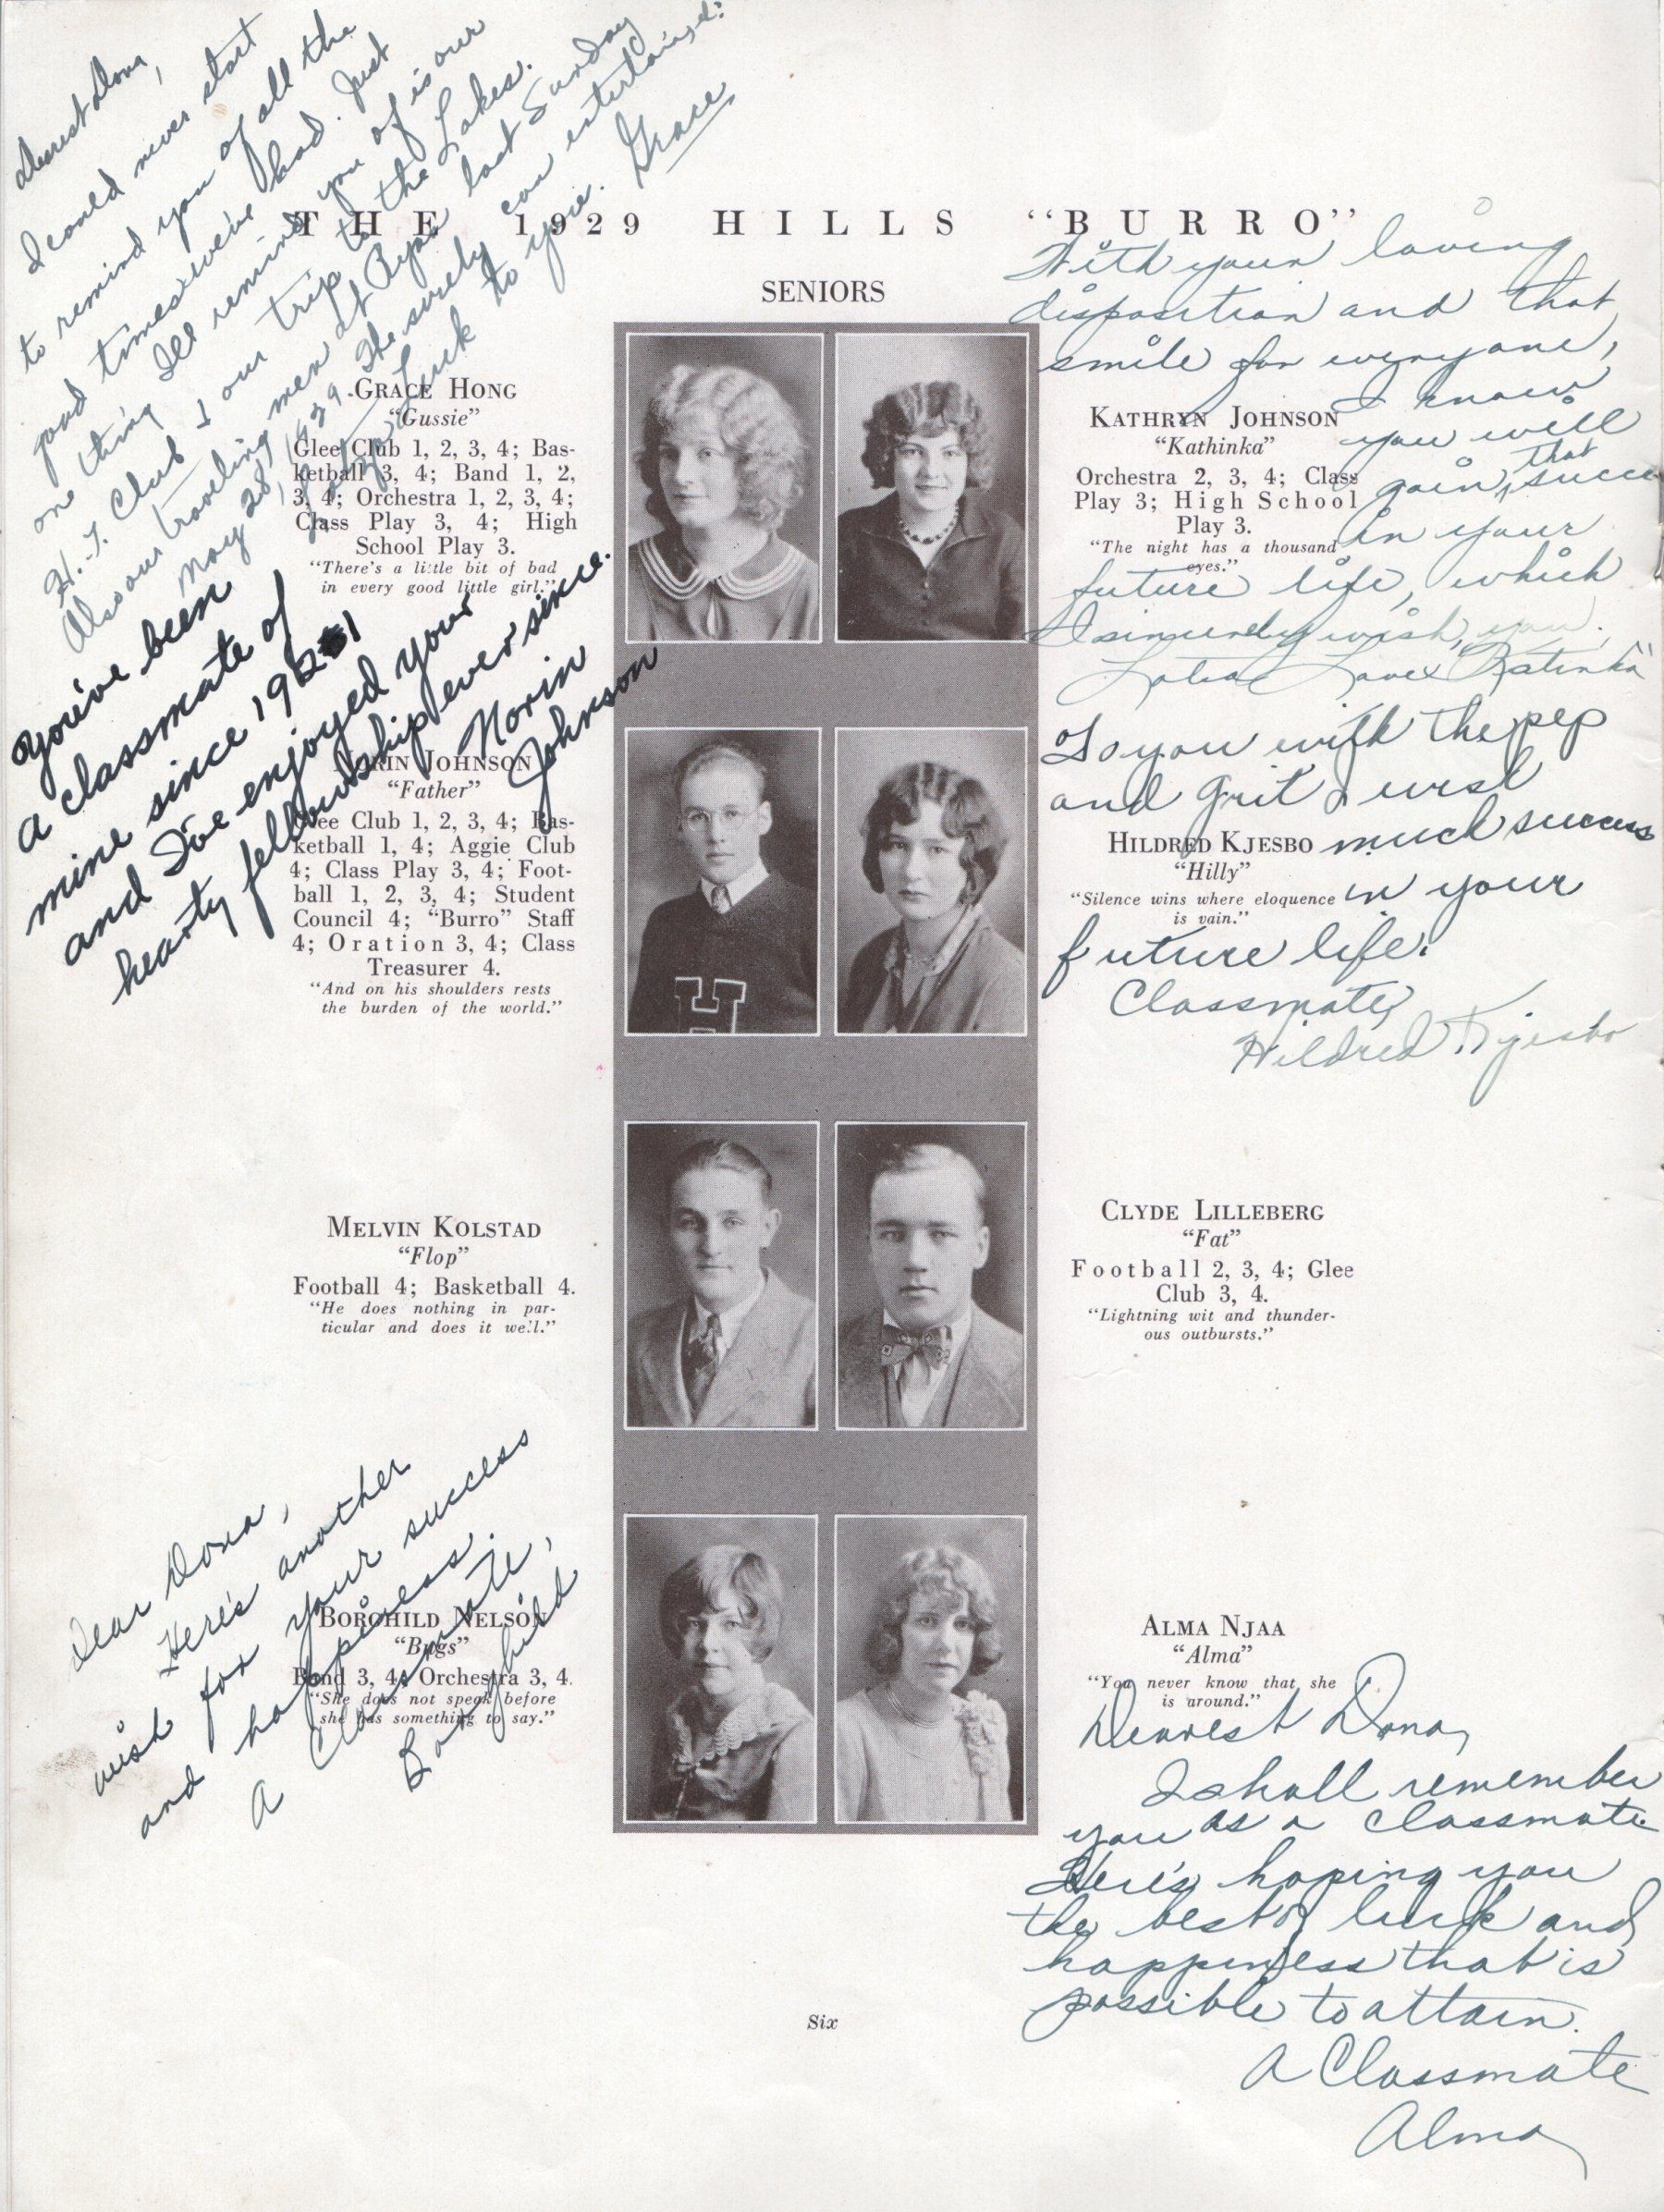 Dearest Dona,
I could never start
to remind you of all the
good times we've had. Just
one thing I'll remind you of is our
H.T. Club & our trip to the Lakes.
Also our traveling men at Ryan last Sunday
May 28, 1929. He surely can entertain, eh?
Luck to you. Grace
THE 1929 HILLS "BURRO"
SENIORS
GRACE HONG
"Gussie"
Glee Club 1, 2, 3, 4; Bas-
ketball 3, 4; Band 1, 2,
3, 4; Orchestra 1, 2, 3, 4;
Class Play 3, 4; High
School Play 3.
"There's a little bit of bad
in every good little girl."
KATHRYN JOHNSON
"Kathinka"
Orchestra 2, 3, 4; Class
Play 3; High School
Play 3.
"The night has a thousand
eyes."
With your loving
disposition and that
smile for everyone,
I know
you will
gain that success
in your
future life, which
I sincerely wish you.
Lotsa Love "Katinka"
You've been
a classmate of
mine since 1921
and I've enjoyed your
hearty fellowship ever since.
Norin
Johnson
NORIN JOHNSON
"Father"
Glee Club 1, 2, 3, 4; Bas-
ketball 1, 4; Aggie Club
4; Class Play 3, 4; Foot-
ball 1, 2, 3, 4; Student
Council 4; "Burro" Staff
4; Oration 3, 4; Class
Treasurer 4.
"And on his shoulders rests
the burden of the world."
To you with the pep
and grit I wish
much success
in your
future life.
Classmate,
Hildred Kjesbo
HILDRED KJESBO
"Hilly"
"Silence wins where eloquence
is vain."
MELVIN KOLSTAD
"Flop"
Football 4; Basketball 4.
"He does nothing in par-
ticular and does it well."
CLYDE LILLEBERG
"Fat"
Football 2, 3, 4; Glee
Club 3, 4.
"Lightning wit and thunder-
ous outbursts."
Dear Dona,
Here's another
wish for your success
and happiness.
A Classmate,
Borghild
BORGHILD NELSON
"Bugs"
Band 3, 4; Orchestra 3, 4.
"She does not speak before
she has something to say."
ALMA NJAA
"Alma"
"You never know that she
is around."
Dearest Dona,
I shall remember
you as a classmate.
Here's hoping you
the best of luck and
happiness that is
possible to attain.
A Classmate
Alma
Six